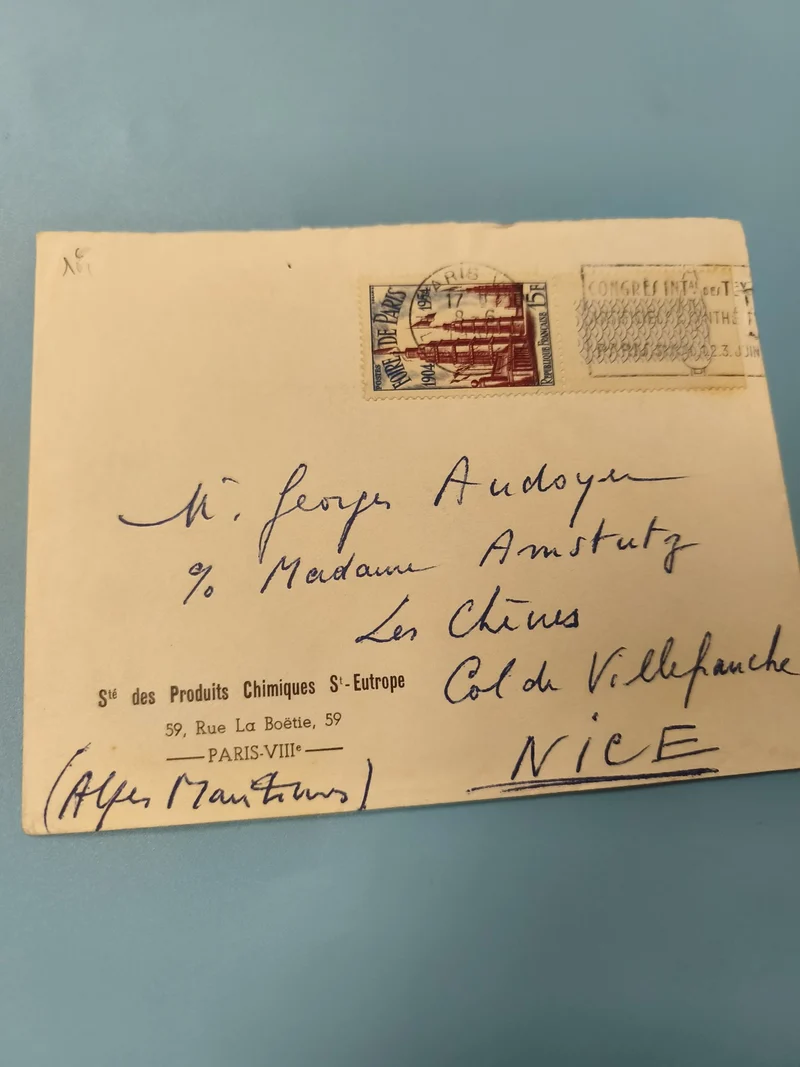 PARIS V
17
8-6
POSTES
FOIRE DE PARIS
1904
1954
15F
RÉPUBLIQUE FRANÇAISE
CONGRÈS INTAL DES TEX
PARIS 2.3. JUIN
Mr. Georges Audoyer
% Madame Amstutz
Les Chênes
Col de Villefranche
NICE
(Alpes Maritimes)
Sté des Produits Chimiques St-Eutrope
59, Rue La Boëtie, 59
PARIS-VIIIe